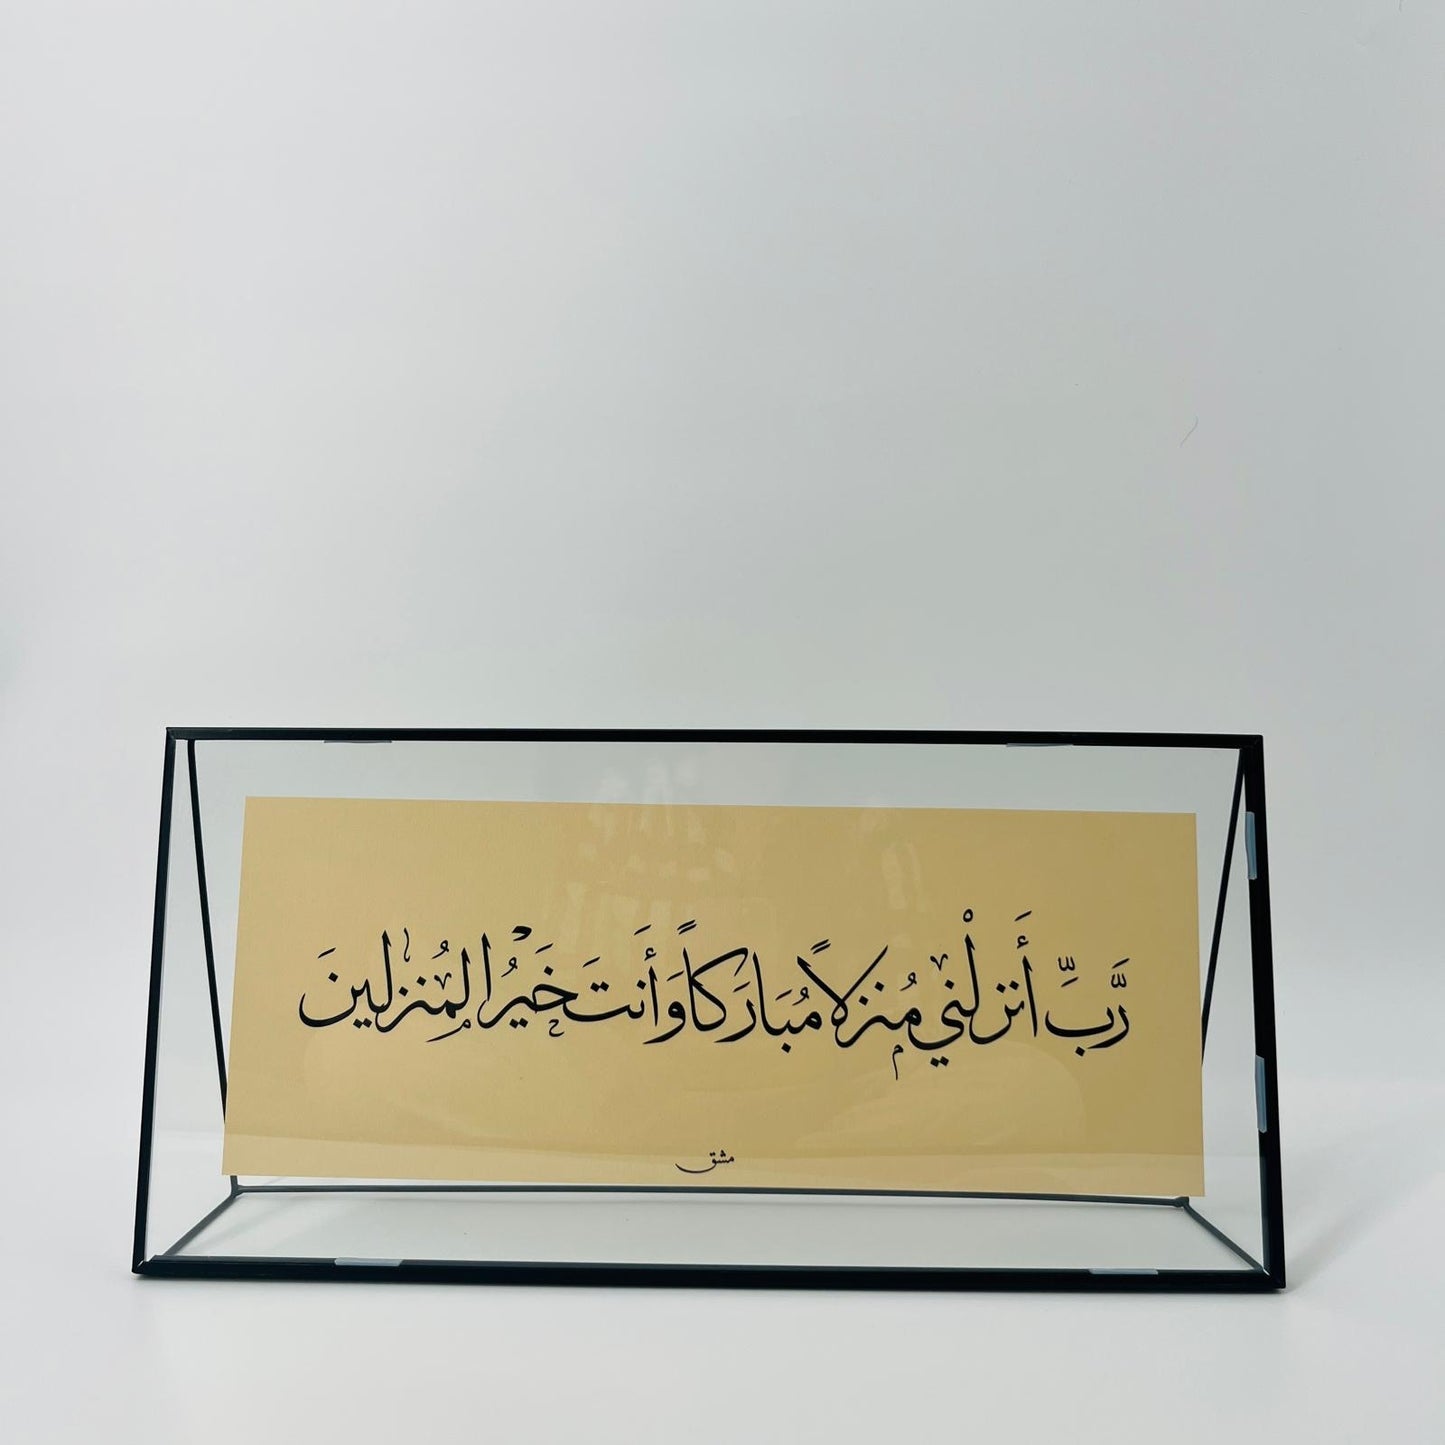 رَّبِّ أَنزلْني مُنزلاً مُبَارَكاً وَأَنتَ خَيْرُ المُنزلينَ
مشق